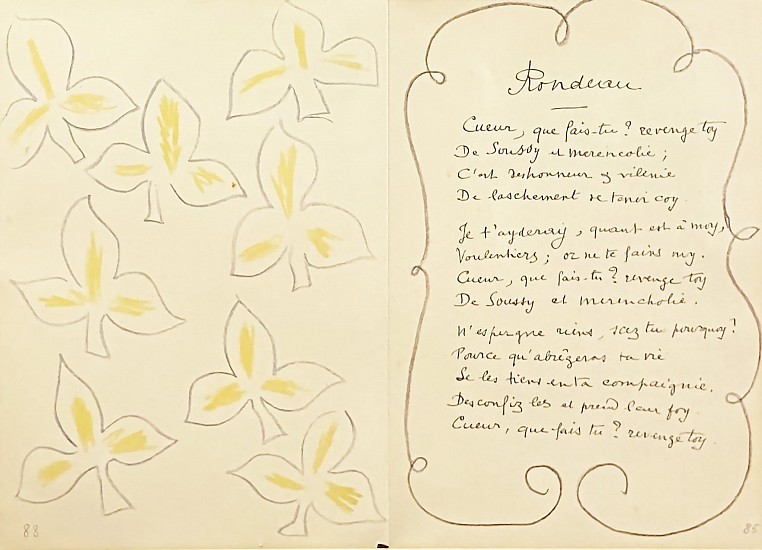 88
Rondeau
Cueur, que fais-tu? revenge toy
De Soussy et merencolie;
C'est deshonneur & vilenie
De laschement se tenir coy.
Je t'ayderay, quant est à moy,
Voulentiers; or ne te fains my.
Cueur, que fais-tu? revenge toy
De Soussy et merencholie.
N'espergne riens, scez tu pourquoy?
Pource qu'abrégeras ta vie
Se les tiens en ta compaignie.
Desconfiz les et prend leur foy.
Cueur, que fais tu? revenge toy.
85